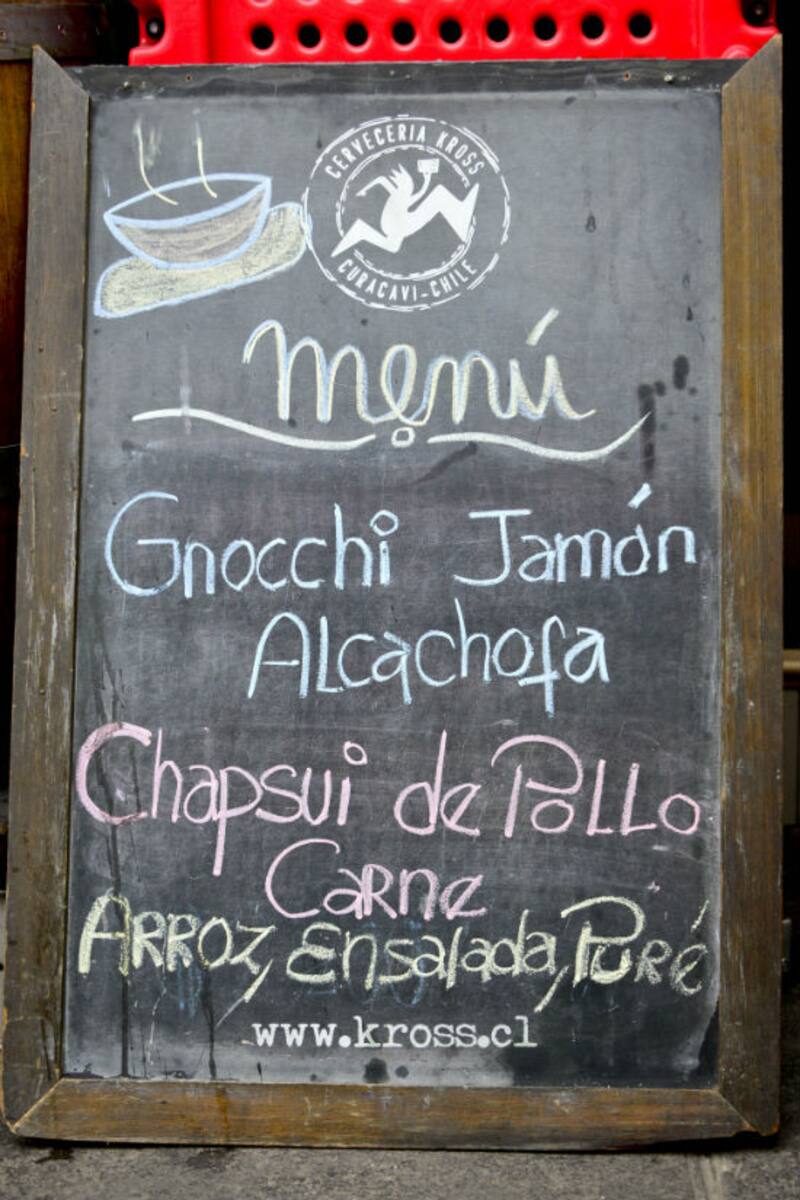 CERVECERIA KROSS
CURACAVI-CHILE
menú
Gnocchi Jamón
Alcachofa
Chapsui de Pollo
Carne
Arroz, Ensalada, Puré
www.kross.cl